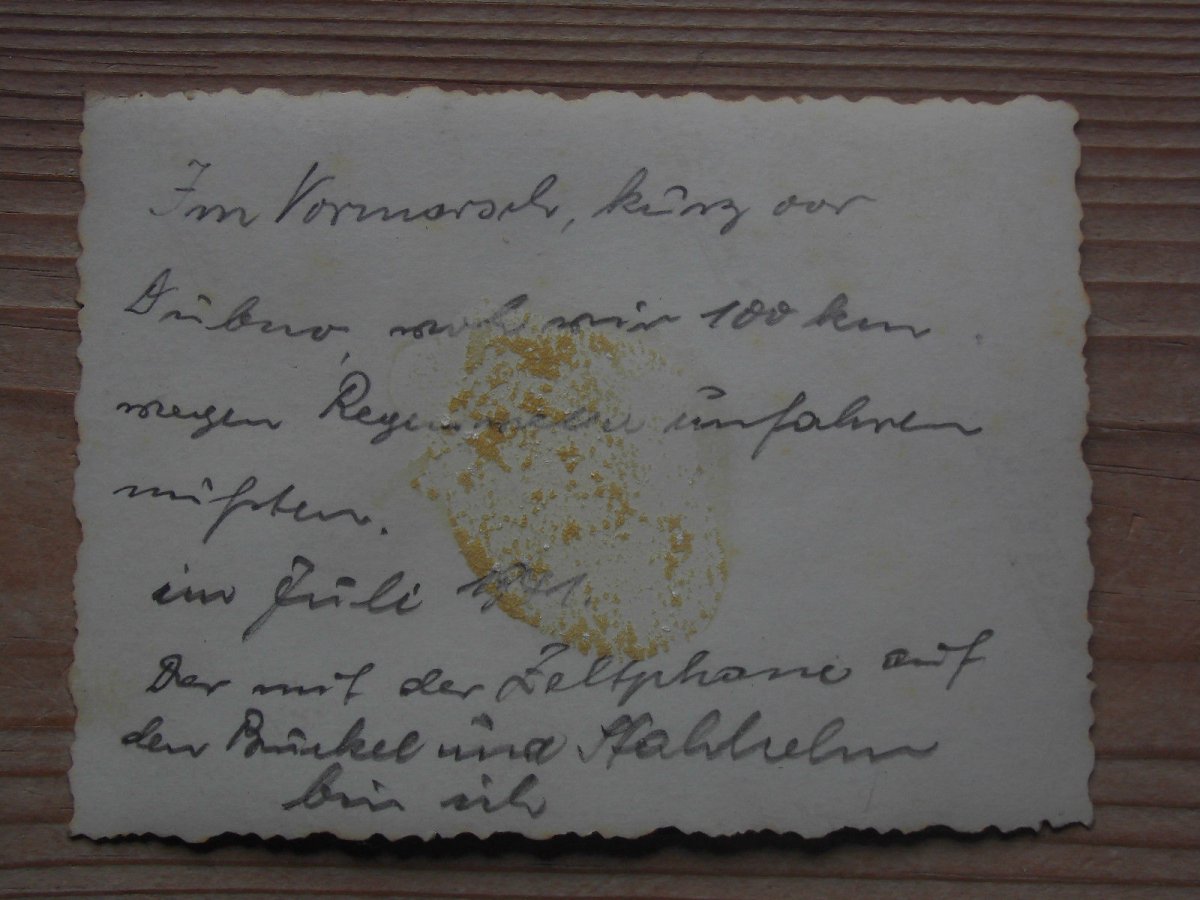 Im Vormarsch, kurz vor
Dubno, woh wir 100 km
wegen Regenwetter umfahren
mußten.
im Juli 1941.
Der mit der Zeltphane auf
den Buckel und Stahlhelm
bin ich